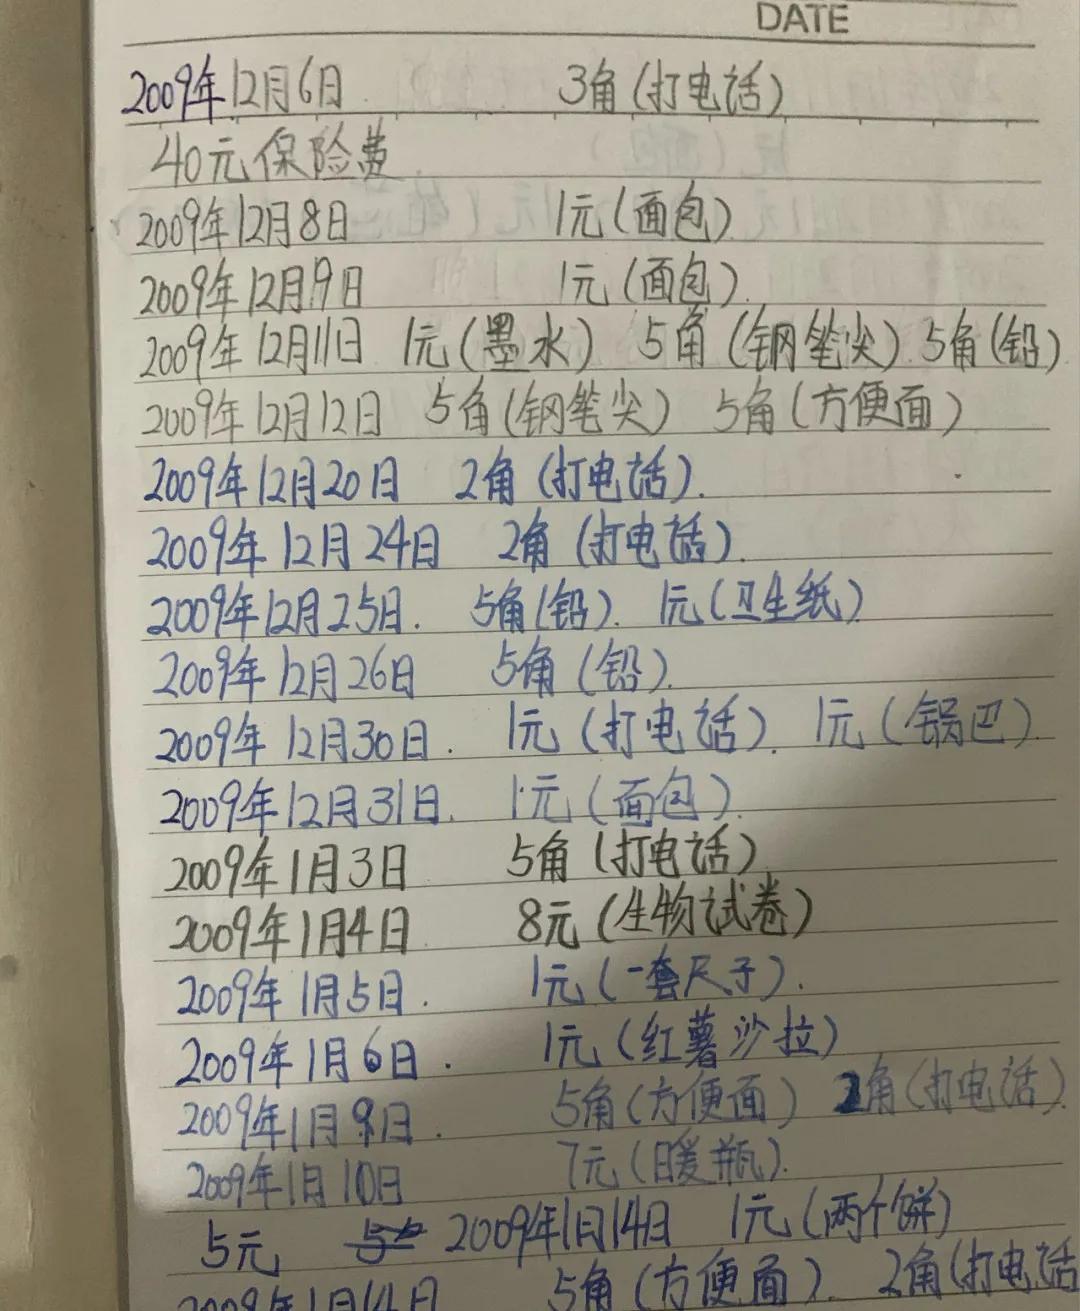 DATE
2009年12月6日 3角(打电话)
40元保险费
2009年12月8日 1元(面包)
2009年12月9日 1元(面包)
2009年12月11日 1元(墨水) 5角(钢笔尖) 5角(铅)
2009年12月12日 5角(钢笔尖) 5角(方便面)
2009年12月20日 2角(打电话).
2009年12月24日 2角(打电话).
2009年12月25日. 5角(铅). 1元(卫生纸)
2009年12月26日 5角(铅).
2009年12月30日. 1元(打电话). 1元(锅巴).
2009年12月31日. 1元(面包).
2009年1月3日 5角(打电话)
2009年1月4日 8元(生物试卷)
2009年1月5日. 1元(一套尺子).
2009年1月6日. 1元(红薯沙拉)
2009年1月9日. 5角(方便面) 2角(打电话).
2009年1月10日 7元(暖瓶).
5元 2009年1月14日 1元(两个饼)
2009年1月14日 5角(方便面). 2角(打电话